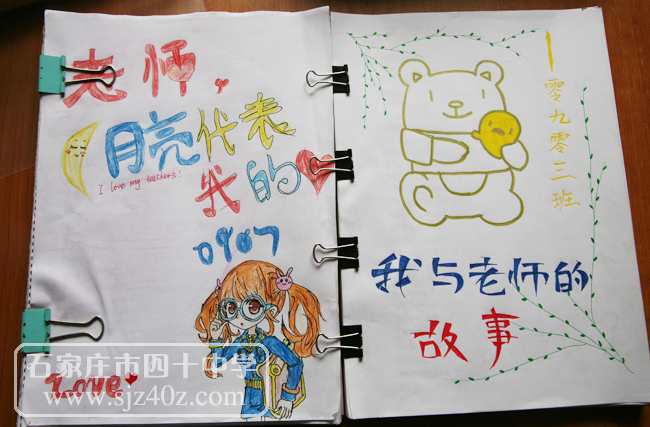 老师,
月亮代表
I love my teachers!
我的
0907
Love
一零九零三班
我与老师的
故事
石家庄市四十中学
www.sjz40z.com